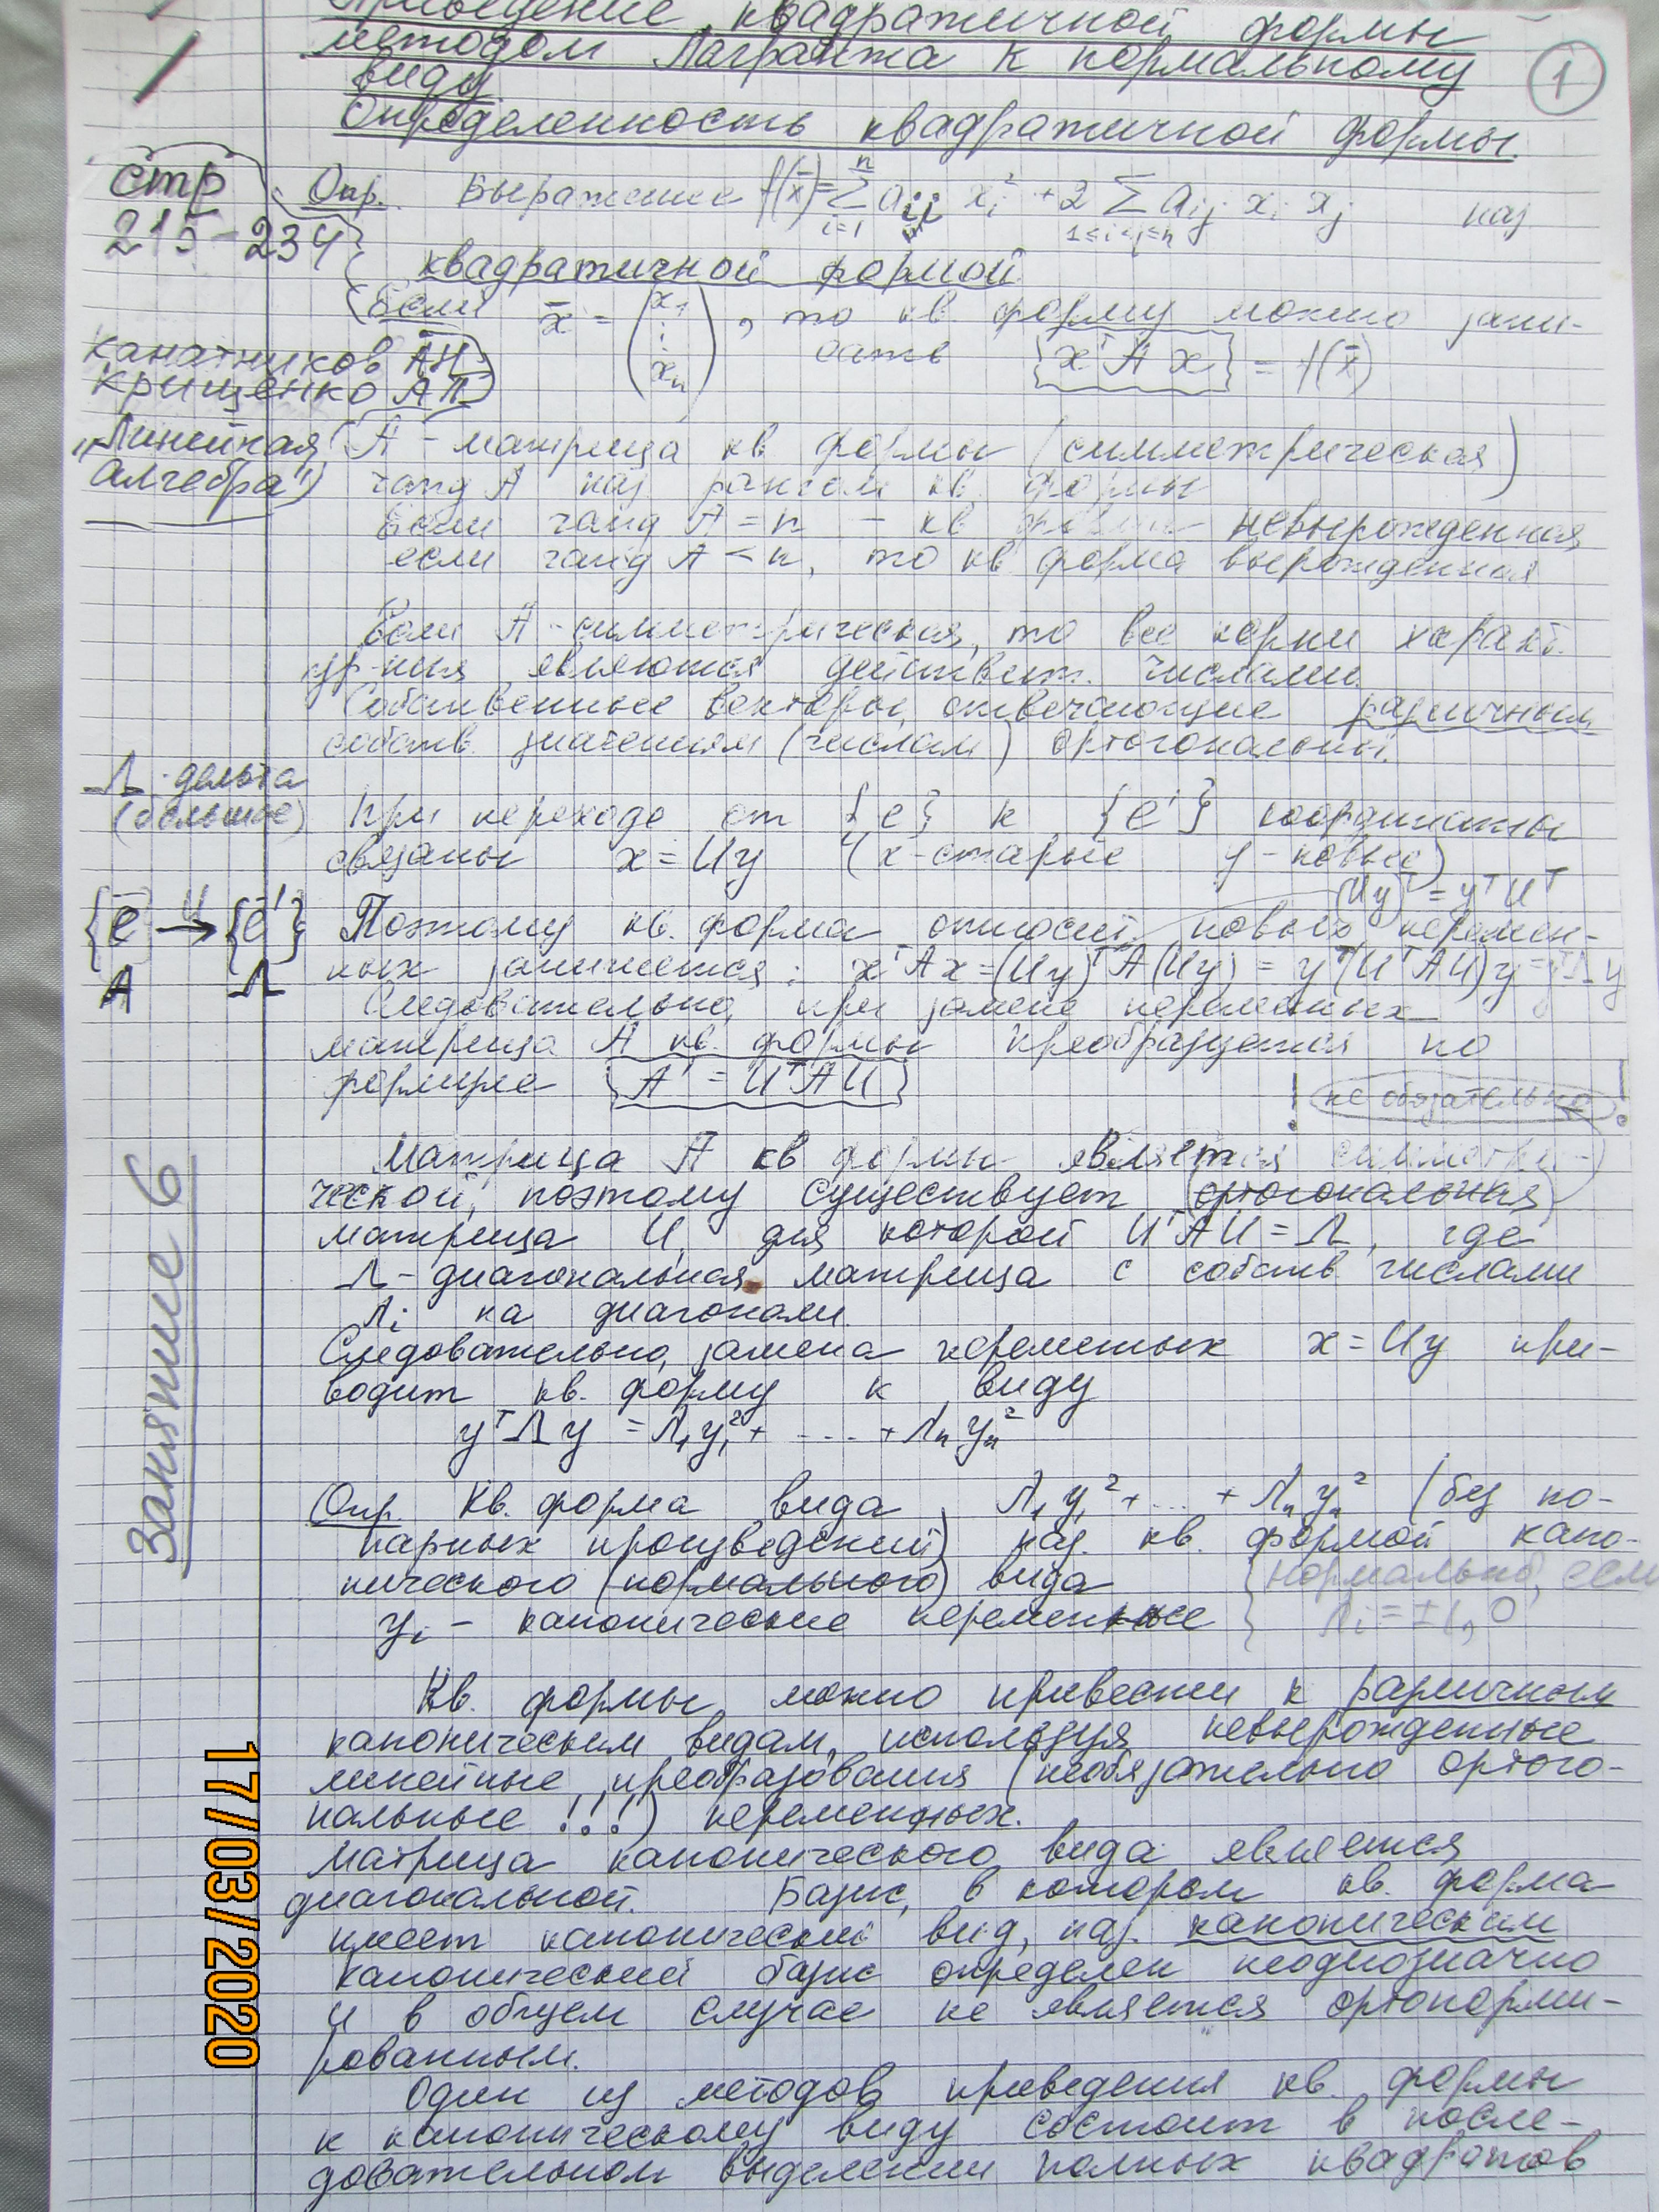 Приведение квадратичной формы
методом Лагранжа к нормальному
виду.
Определенность квадратичной формы.
1
стр
215-234
Канатников АН
Крищенко АП
"Линейная
алгебра"
Опр. Выражение f(x̄)=∑ᵢ₌₁ⁿ aᵢᵢ xᵢ² + 2 ∑ aᵢⱼ xᵢ xⱼ наз
1≤i<j≤n
квадратичной формой
Если x̄ = (x₁ ⋮ xₙ), то кв. форму можно запи-
сать {xᵀAx} = f(x̄)
A - матрица кв формы (симметрическая)
rang A наз рангом кв. формы
Если rang A = n - кв форма невырожденная
если rang A < n, то кв форма вырожденная
Если A - симметрическая, то все корни характ.
ур-ния являются действит. числами.
Собственные векторы, отвечающие различным
собств. значениям (числам) ортогональны.
Λ - дельта
(большое)
При переходе от {e} к {e'} координаты
связаны x = Uy (x-старые y-новые)
(Uy)ᵀ = yᵀUᵀ
{e̅} →U {e̅'}
A Λ
Поэтому кв. форма относит. новых перемен-
ных запишется: xᵀAx=(Uy)ᵀA(Uy) = yᵀ(UᵀAU)y=yᵀΛy
Следовательно, при замене переменных
матрица A кв. формы преобразуется по
формуле {A' = UᵀAU}
! не обязательно !
Матрица A кв формы является симметри-
ческой, поэтому существует (ортогональная)
матрица U, для которой UᵀAU = Λ, где
Λ - диагональная матрица с собств числами
λᵢ на диагонали.
Следовательно, замена переменных x = Uy при-
водит кв. форму к виду
yᵀΛy = λ₁y₁² + .... + λₙyₙ²
Занятие 6
Опр. Кв. форма вида λ₁y₁² + ... + λₙyₙ² (без по-
парных произведений) наз. кв. формой кано-
нического (нормального) вида
{нормально, если
λᵢ = ±1, 0
yᵢ - канонические переменные
Кв. формы можно привести к различным
каноническим видам, используя невырожденные
линейные преобразования (необязательно ортого-
нальные !!!) переменных.
Матрица канонического вида является
диагональной. Базис, в котором кв. форма
имеет канонический вид, наз. каноническим
Канонический базис определен неоднозначно
и в общем случае не является ортонорми-
рованным.
Один из методов приведения кв. формы
к каноническому виду состоит в после-
довательном выделении полных квадратов
17/03/2020